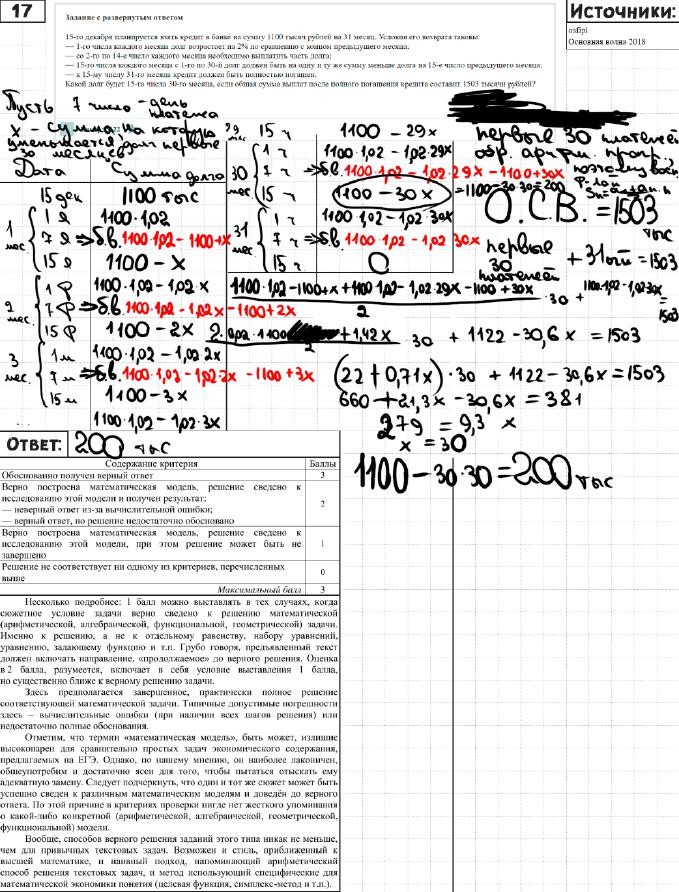 17
Задание с развернутым ответом
Источники:
osfipi
Основная волна 2018
15-го декабря планируется взять кредит в банке на сумму 1100 тысяч рублей на 31 месяц. Условия его возврата таковы:
— 1-го числа каждого месяца долг возрастает на 2% по сравнению с концом предыдущего месяца;
— со 2-го по 14-е число каждого месяца необходимо выплатить часть долга;
— 15-го числа каждого месяца с 1-го по 30-й долг должен быть на одну и ту же сумму меньше долга на 15-е число предыдущего месяца;
— к 15-му числу 31-го месяца кредит должен быть полностью погашен.
Какой долг будет 15-го числа 30-го месяца, если общая сумма выплат после полного погашения кредита составит 1503 тысячи рублей?
Пусть 7 число - день
платежа
x - сумма, на которую
уменьшается долг первые
30 месяцев
Дата Сумма долга
15 дек 1100 тыс
1 мес.
1 я 1100·1,02
7 я => б.в. 1100·1,02 - 1100+x
15 я 1100 - x
2 мес.
1 ф 1100·1,02 - 1,02·x
7 ф => б.в. 1100·1,02 - 1,02x - 1100+2x
15 ф 1100 - 2x
3 мес.
1 м 1100·1,02 - 1,02·2x
7 м => б.в. 1100·1,02 - 1,02·2x - 1100+3x
15 м 1100 - 3x
1100·1,02 - 1,02·3x
29 15 ч 1100 - 29x
30
1 ч 1100·1,02 - 1,02·29x
7 ч => б.в. 1100·1,02 - 1,02·29x - 1100+30x
15 ч 1100 - 30x = 1100-30·30=200
31
1 ч 1100·1,02 - 1,02·30x
7 ч => б.в. 1100·1,02 - 1,02·30x
15 ч 0
первые 30 платежей
обр. арифм. прогр.,
поэтому
О.С.В. = 1503
тыс
первые
30
платежей
+ 31ый = 1503
1100·1,02-1100+x + 1100·1,02 - 1,02·29x - 1100 + 30x
2
·30 + 1100·1,02-1,02·30x = 1503
2·0,02·1100 + 1,42x
2
30 + 1122 - 30,6x = 1503
(22 + 0,71x)·30 + 1122 - 30,6x = 1503
660 + 21,3x - 30,6x = 381
279 = 9,3 x
x = 30
1100 - 30·30 = 200 тыс
ОТВЕТ: 200 тыс
Содержание критерия Баллы
Обоснованно получен верный ответ 3
Верно построена математическая модель, решение сведено к
исследованию этой модели и получен результат:
— неверный ответ из-за вычислительной ошибки;
— верный ответ, но решение недостаточно обосновано
2
Верно построена математическая модель, решение сведено к
исследованию этой модели, при этом решение может быть не
завершено
1
Решение не соответствует ни одному из критериев, перечисленных
выше
0
Максимальный балл 3
Несколько подробнее: 1 балл можно выставлять в тех случаях, когда
сюжетное условие задачи верно сведено к решению математической
(арифметической, алгебраической, функциональной, геометрической) задачи.
Именно к решению, а не к отдельному равенству, набору уравнений,
уравнению, задающему функцию и т.п. Грубо говоря, предъявленный текст
должен включать направление, «продолжаемое» до верного решения. Оценка
в 2 балла, разумеется, включает в себя условие выставления 1 балла,
но существенно ближе к верному решению задачи.
Здесь предполагается завершенное, практически полное решение
соответствующей математической задачи. Типичные допустимые погрешности
здесь – вычислительные ошибки (при наличии всех шагов решения) или
недостаточно полные обоснования.
Отметим, что термин «математическая модель», быть может, излишне
высокопарен для сравнительно простых задач экономического содержания,
предлагаемых на ЕГЭ. Однако, по нашему мнению, он наиболее лаконичен,
общеупотребим и достаточно ясен для того, чтобы пытаться отыскать ему
адекватную замену. Следует подчеркнуть, что один и тот же сюжет может быть
успешно сведен к различным математическим моделям и доведён до верного
ответа. По этой причине в критериях проверки нигде нет жесткого упоминания
о какой-либо конкретной (арифметической, алгебраической, геометрической,
функциональной) модели.
Вообще, способов верного решения заданий этого типа никак не меньше,
чем для привычных текстовых задач. Возможен и стиль, приближенный к
высшей математике, и наивный подход, напоминающий арифметический
способ решения текстовых задач, и метод использующий специфические для
математической экономики понятия (целевая функция, симплекс-метод и т.п.).